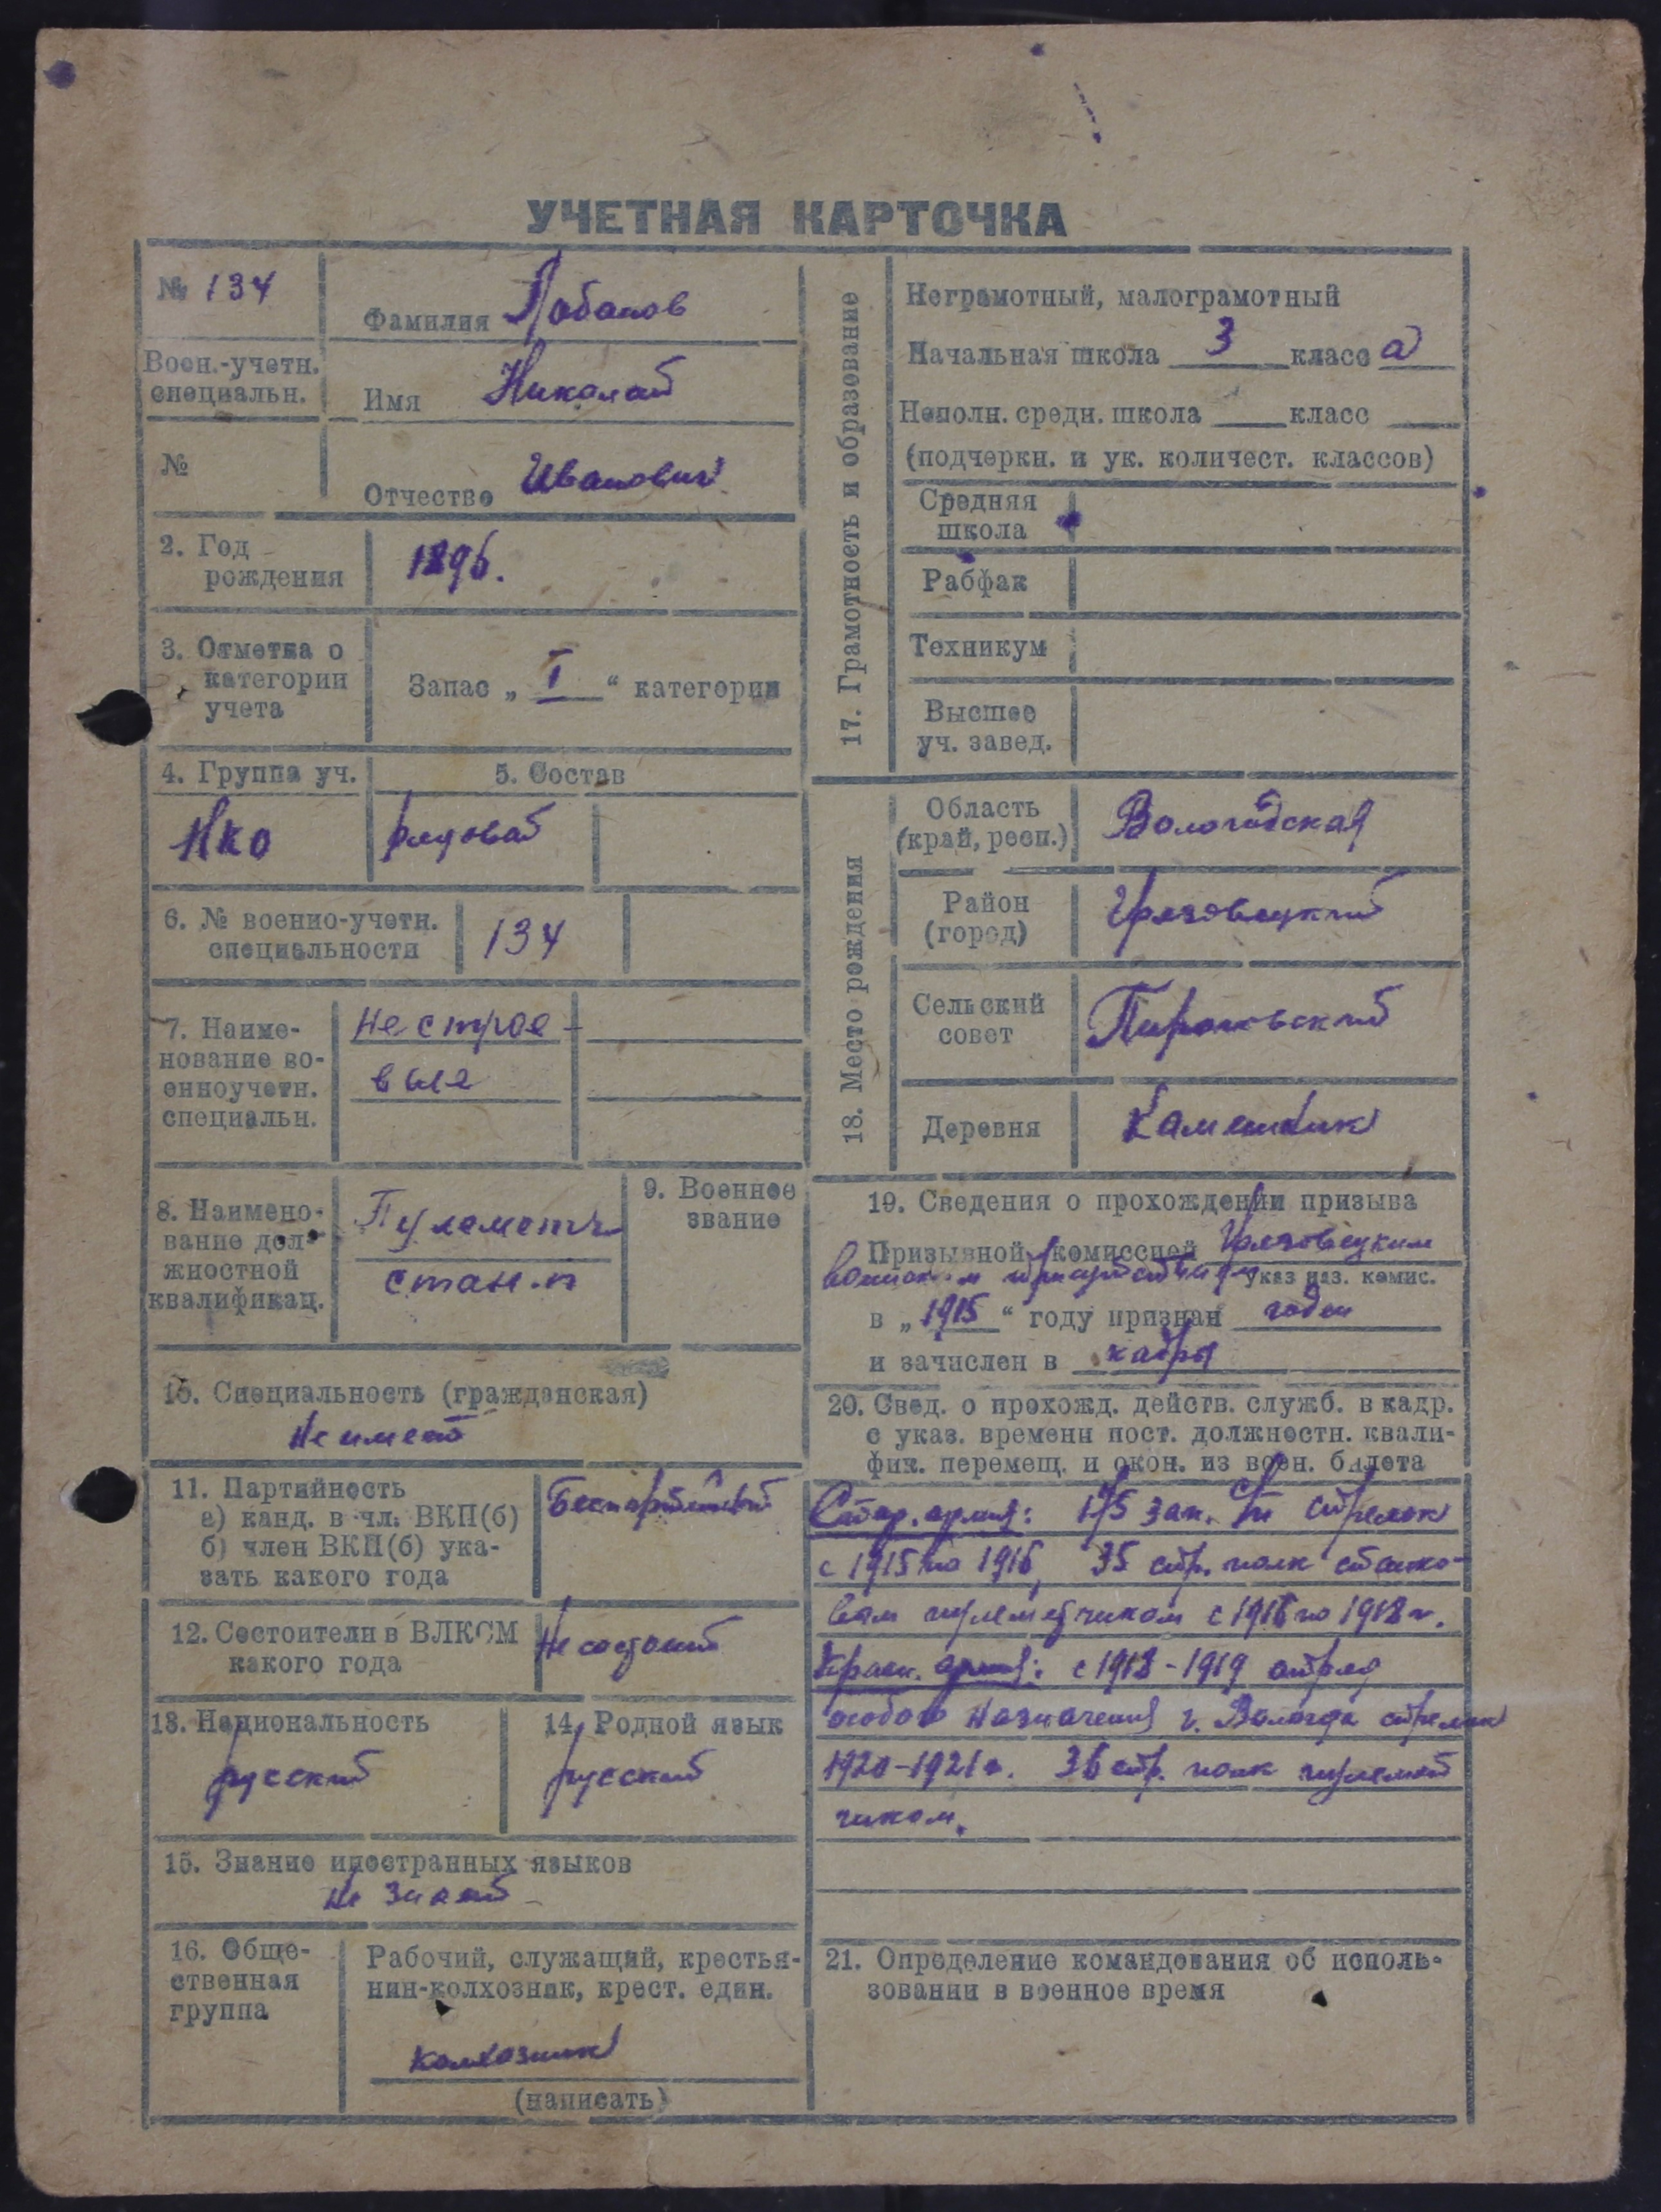 УЧЕТНАЯ КАРТОЧКА
№ 134
Фамилия Лобанов
Воен.-учетн.
специальн.
Имя Николай
№
Отчество Иванович
2. Год
рождения
1896.
3. Отметка о
категории
учета
Запас „ I “ категории
4. Группа уч.
5. Состав
НКО
рядовой
6. № военно-учетн.
специальности
134
7. Наиме-
нование во-
енноучетн.
специальн.
Нестрое-
вые
8. Наимено-
вание дол-
жностной
квалификац.
Пулеметч
стан.п
9. Военное
звание
10. Специальность (гражданская)
Не имеет
11. Партийность
а) канд. в чл. ВКП(б)
б) член ВКП(б) ука-
зать какого года
Беспартийный
12. Состоит ли в ВЛКСМ
какого года
Не состоит
13. Национальность
русский
14. Родной язык
русский
15. Знание иностранных языков
не знает
16. Обще-
ственная
группа
Рабочий, служащий, крестья-
нин-колхозник, крест. един.
колхозник
(написать)
17. Грамотность и образование
Неграмотный, малограмотный
Начальная школа 3 класс а
Неполн. средн. школа класс
(подчеркн. и ук. количест. классов)
Средняя
школа
Рабфак
Техникум
Высшее
уч. завед.
18. Место рождения
Область
(край, респ.)
Вологодская
Район
(город)
Грязовецкий
Сельский
совет
Деревня
19. Сведения о прохождении призыва
Призывной комиссией Грязовецким
воинским присутствием
указ наз. комис.
в „ 1915 “ году признан годен
и зачислен в кадры
20. Свед. о прохожд. действ. служб. в кадр.
с указ. времени пост. должностн. квали-
фик. перемещ. и окон. из воен. билета
Стар. армия: 175 зап. стрелок
с 1915 по 1916, 35 стр. полк станко-
вым пулеметчиком с 1916 по 1918 г.
Красн. армия: с 1918-1919 отряд
особого назначения г. Вологда стрелок
1920-1921 г. 36 стр. полк пулемет
чиком.
21. Определение командования об исполь-
зовании в военное время